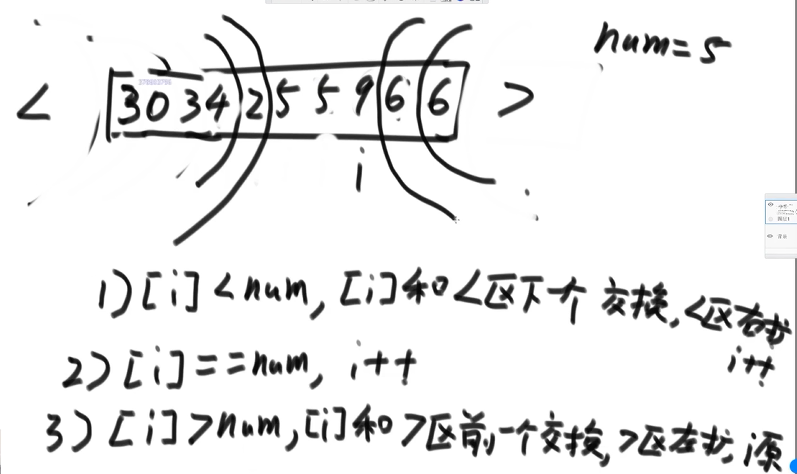 num=5
< 3 0 3 4 2 5 5 9 6 6 >
i
1) [i] < num, [i]和<区下一个 交换, <区右扩
i++
2) [i] == num, i++
3) [i] > num, [i]和 >区前一个交换, >区左扩, i原